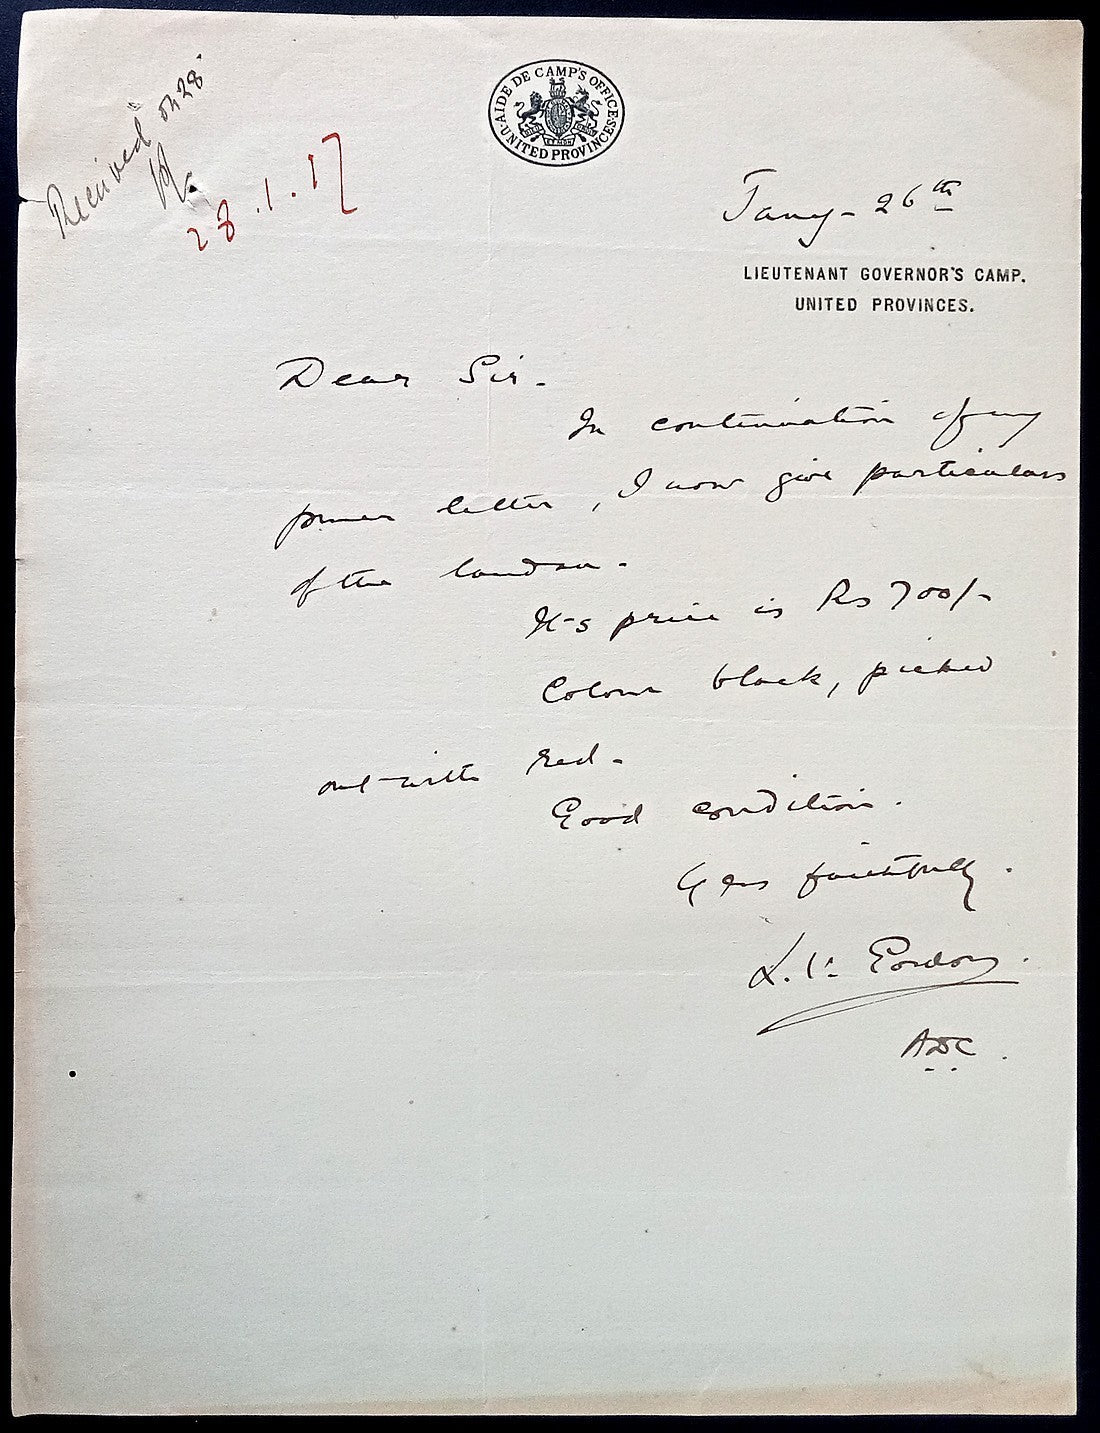 Received on 28
28.1.17
AIDE DE CAMP'S OFFICE
UNITED PROVINCES
Jany - 26th
LIEUTENANT GOVERNOR'S CAMP.
UNITED PROVINCES.
Dear Sir -
In continuation of my
former letter, I now give particulars
of the landau.
Its price is Rs 700/-
Colour black, picked
out with red.
Good condition.
Yrs faithfully.
Gordon.
ADC.